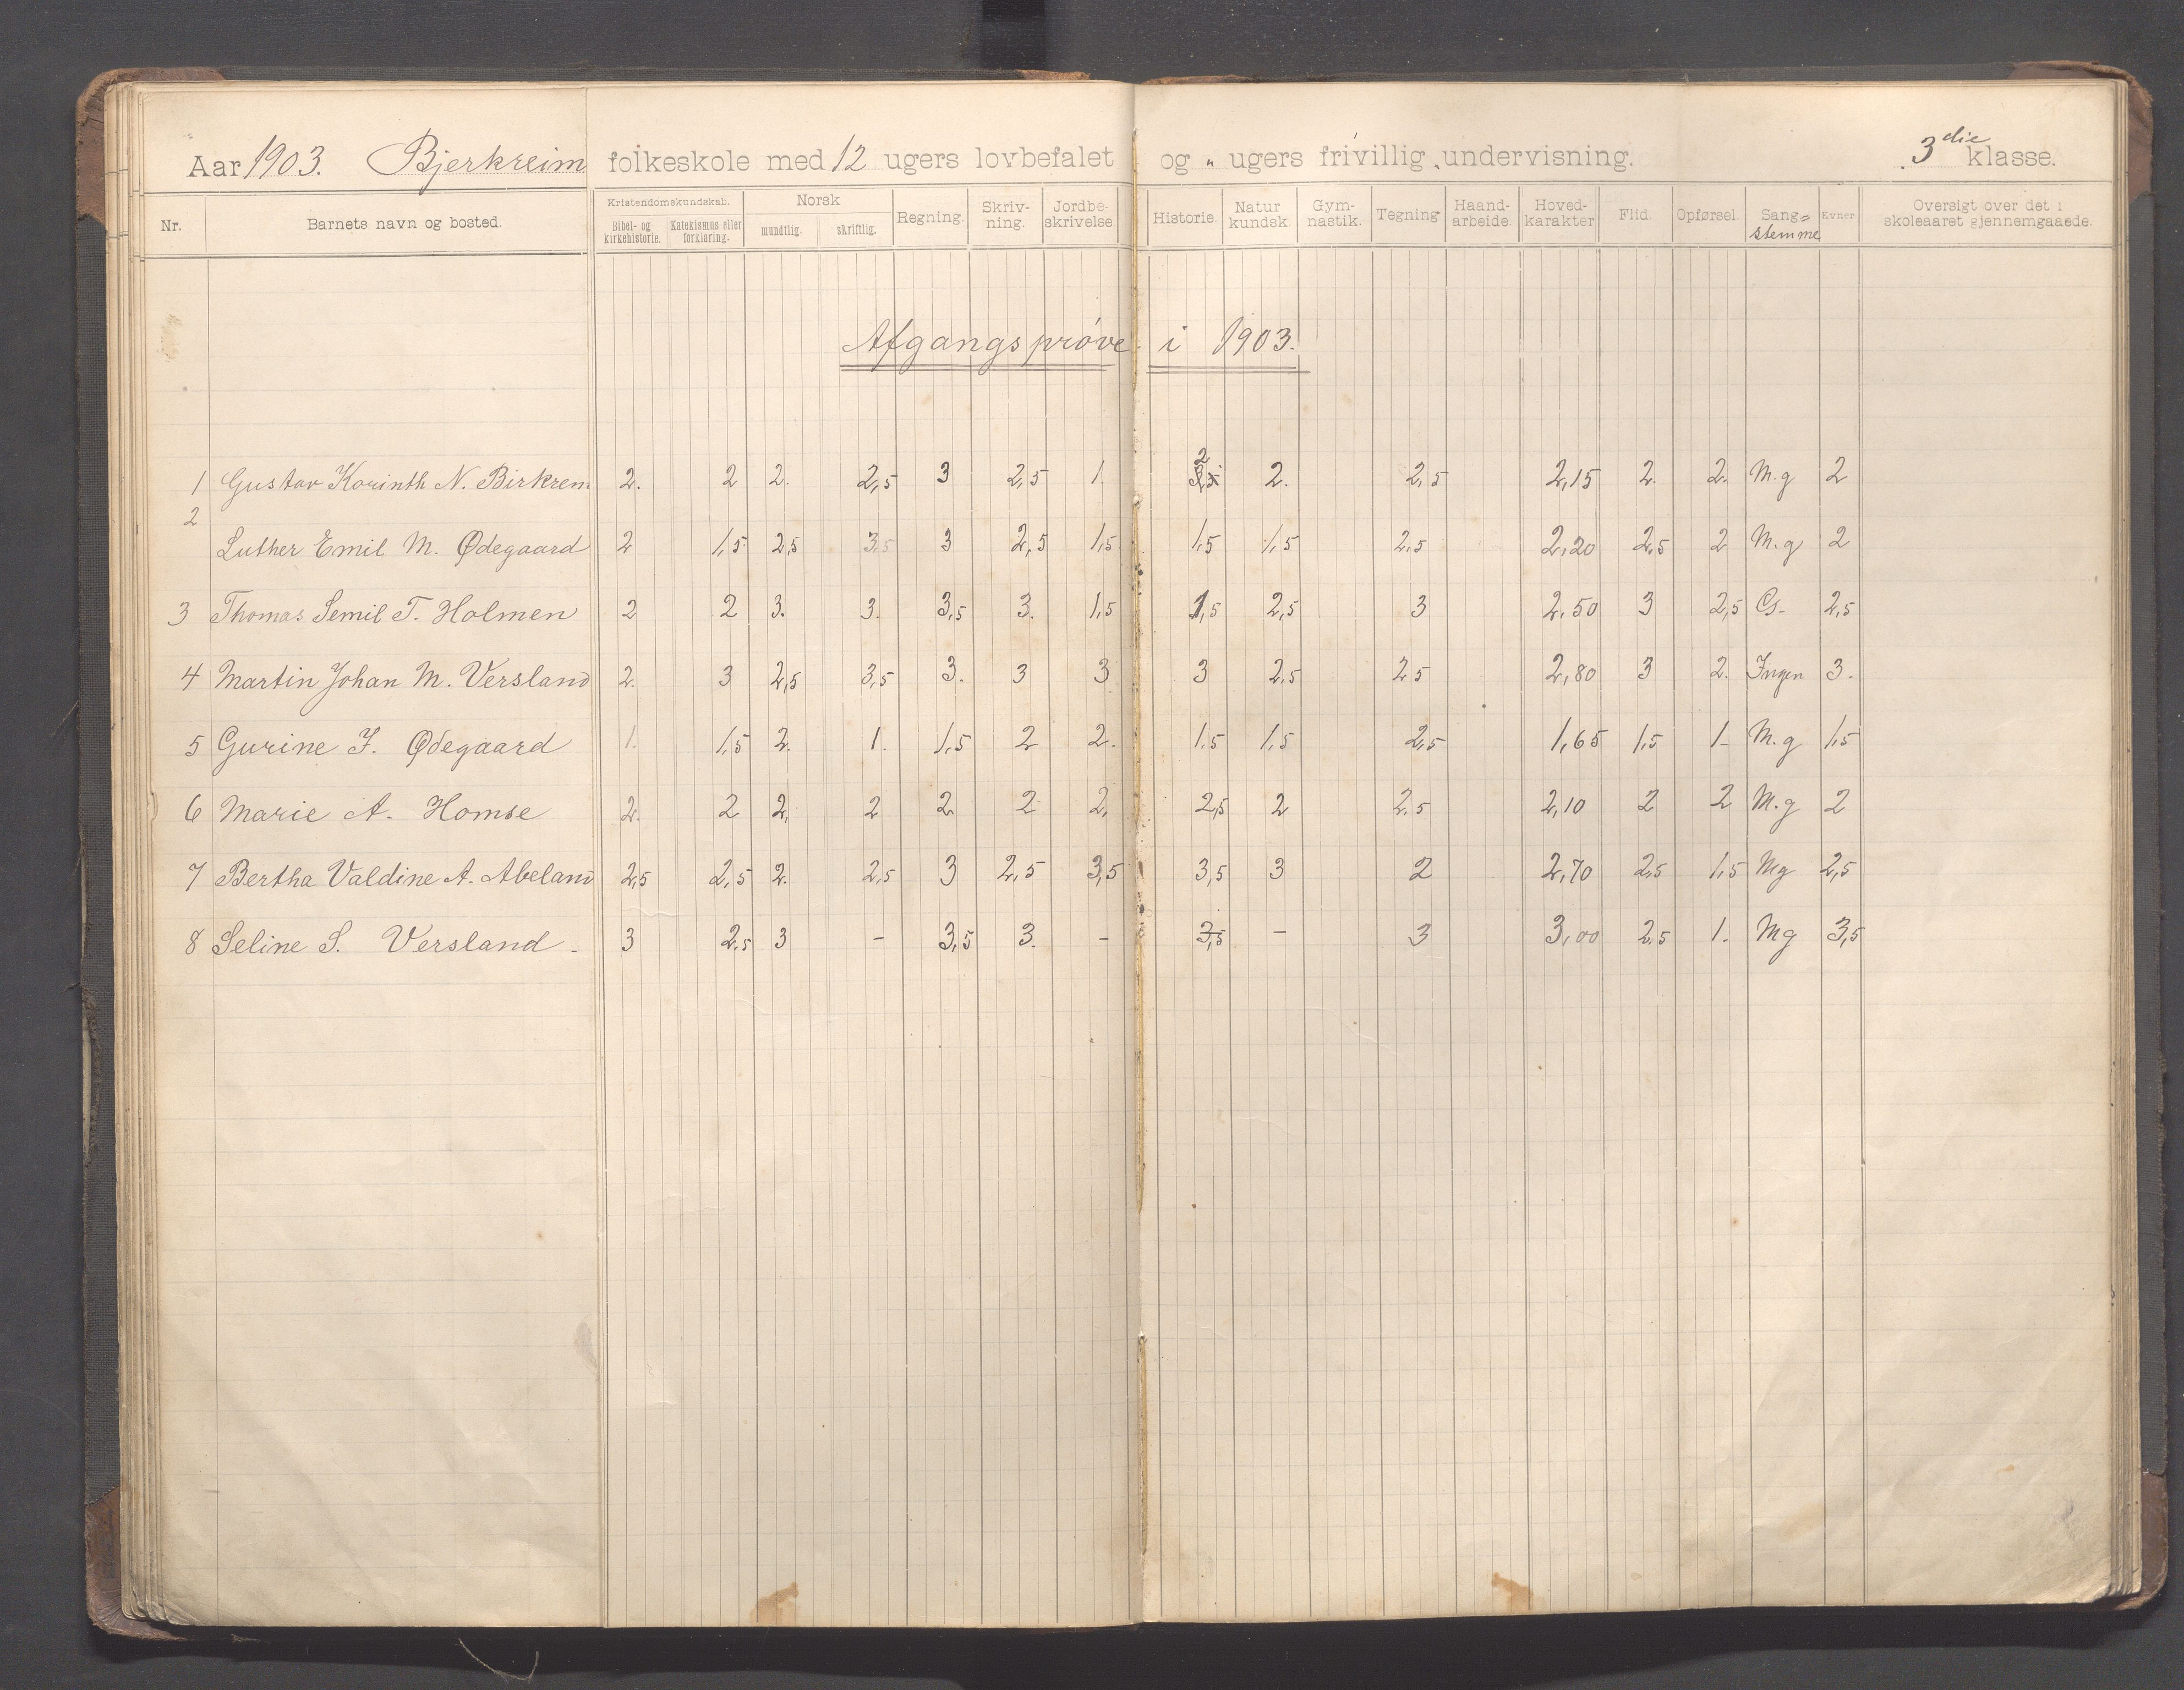 Aar 1903. Bjerkreim folkeskole med 12 ugers lovbefalet og „ ugers frivillig undervisning. 3die klasse.
Nr. Barnets navn og bosted. Kristendomskundskab. Bibel- og kirkehistorie. Katekismus eller forklaring. Norsk mundtlig. skriftlig. Regning. Skriv-ning. Jordbe-skrivelse Historie. Natur kundsk. Gym-nastik. Tegning Haand-arbeide. Hoved-karakter Flid. Opførsel. Sang= stemme Evner Oversigt over det i skoleaaret gjennemgaaede.
Afgangsprøve i 1903.
1 Gustav Korinth N. Birkrem 2. 2 2. 2,5 3 2,5 1. 2 2. 2,5 2,15 2. 2. M.g 2
2 Luther Emil M. Ødegaard 2 1,5 2,5 3,5 3 2,5 1,5 1,5 1,5 2,5 2,20 2,5 2 M.g 2
3 Thomas Semil T. Holmen 2 2 3. 3. 3,5 3. 1,5 1,5 2,5 3 2,50 3 2,5 G. 2,5
4 Martin Johan M. Versland 2. 3 2,5 3,5 3. 3 3 3 2,5 2,5 2,80 3 2. Ingen 3.
5 Gurine J. Ødegaard 1. 1,5 2. 1. 1,5 2 2. 1,5 1,5 2,5 1,65 1,5 1- M.g 1,5
6 Marie A. Homse 2. 2 2, 2 2 2 2, 2,5 2 2,5 2,10 2 2 M.g 2
7 Bertha Valdine A. Abeland 2,5 2,5 2. 2,5 3 2,5 3,5 3,5 3 2 2,70 2,5 1,5 Mg 2,5
8 Seline S. Versland - 3 2,5 3 - 3,5 3. - 3,5 - 3 3,00 2,5 1. Mg 3,5